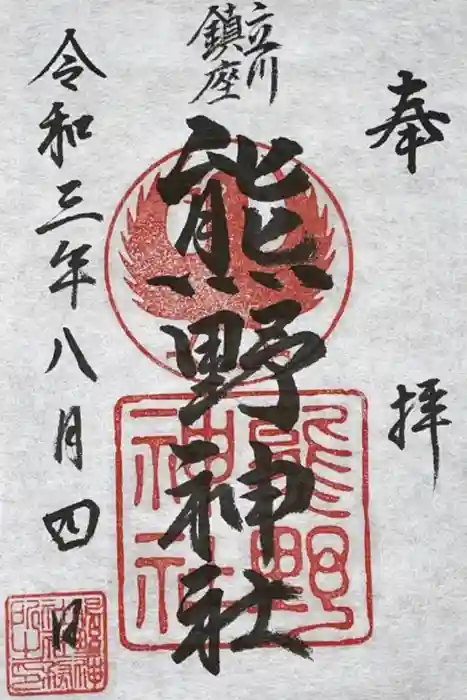 奉拝
立川
鎮座
熊野神社
熊野
神社
令和三年八月四日